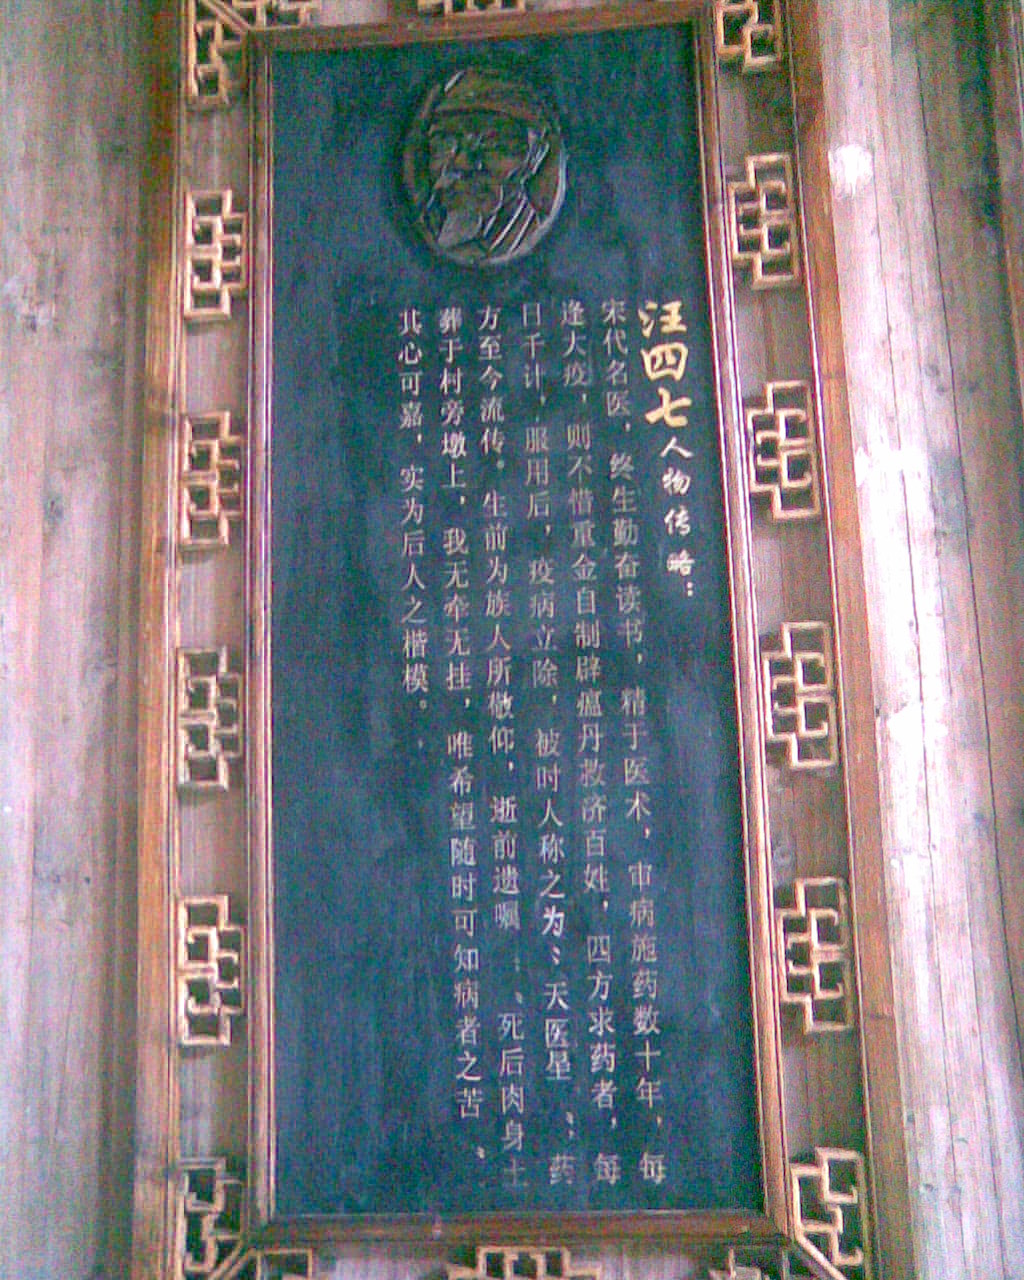 汪四七人物传略：
宋代名医，终生勤奋读书，精于医术，审病施药数十年，每
逢大疫，则不惜重金自制辟瘟丹救济百姓，四方求药者，每
日千计，服用后，疫病立除，被时人称之为“天医星”，药
方至今流传。生前为族人所敬仰，逝前遗嘱：“死后肉身土
葬于村旁墩上，我无牵无挂，唯希望随时可知病者之苦”
其心可嘉，实为后人之楷模。